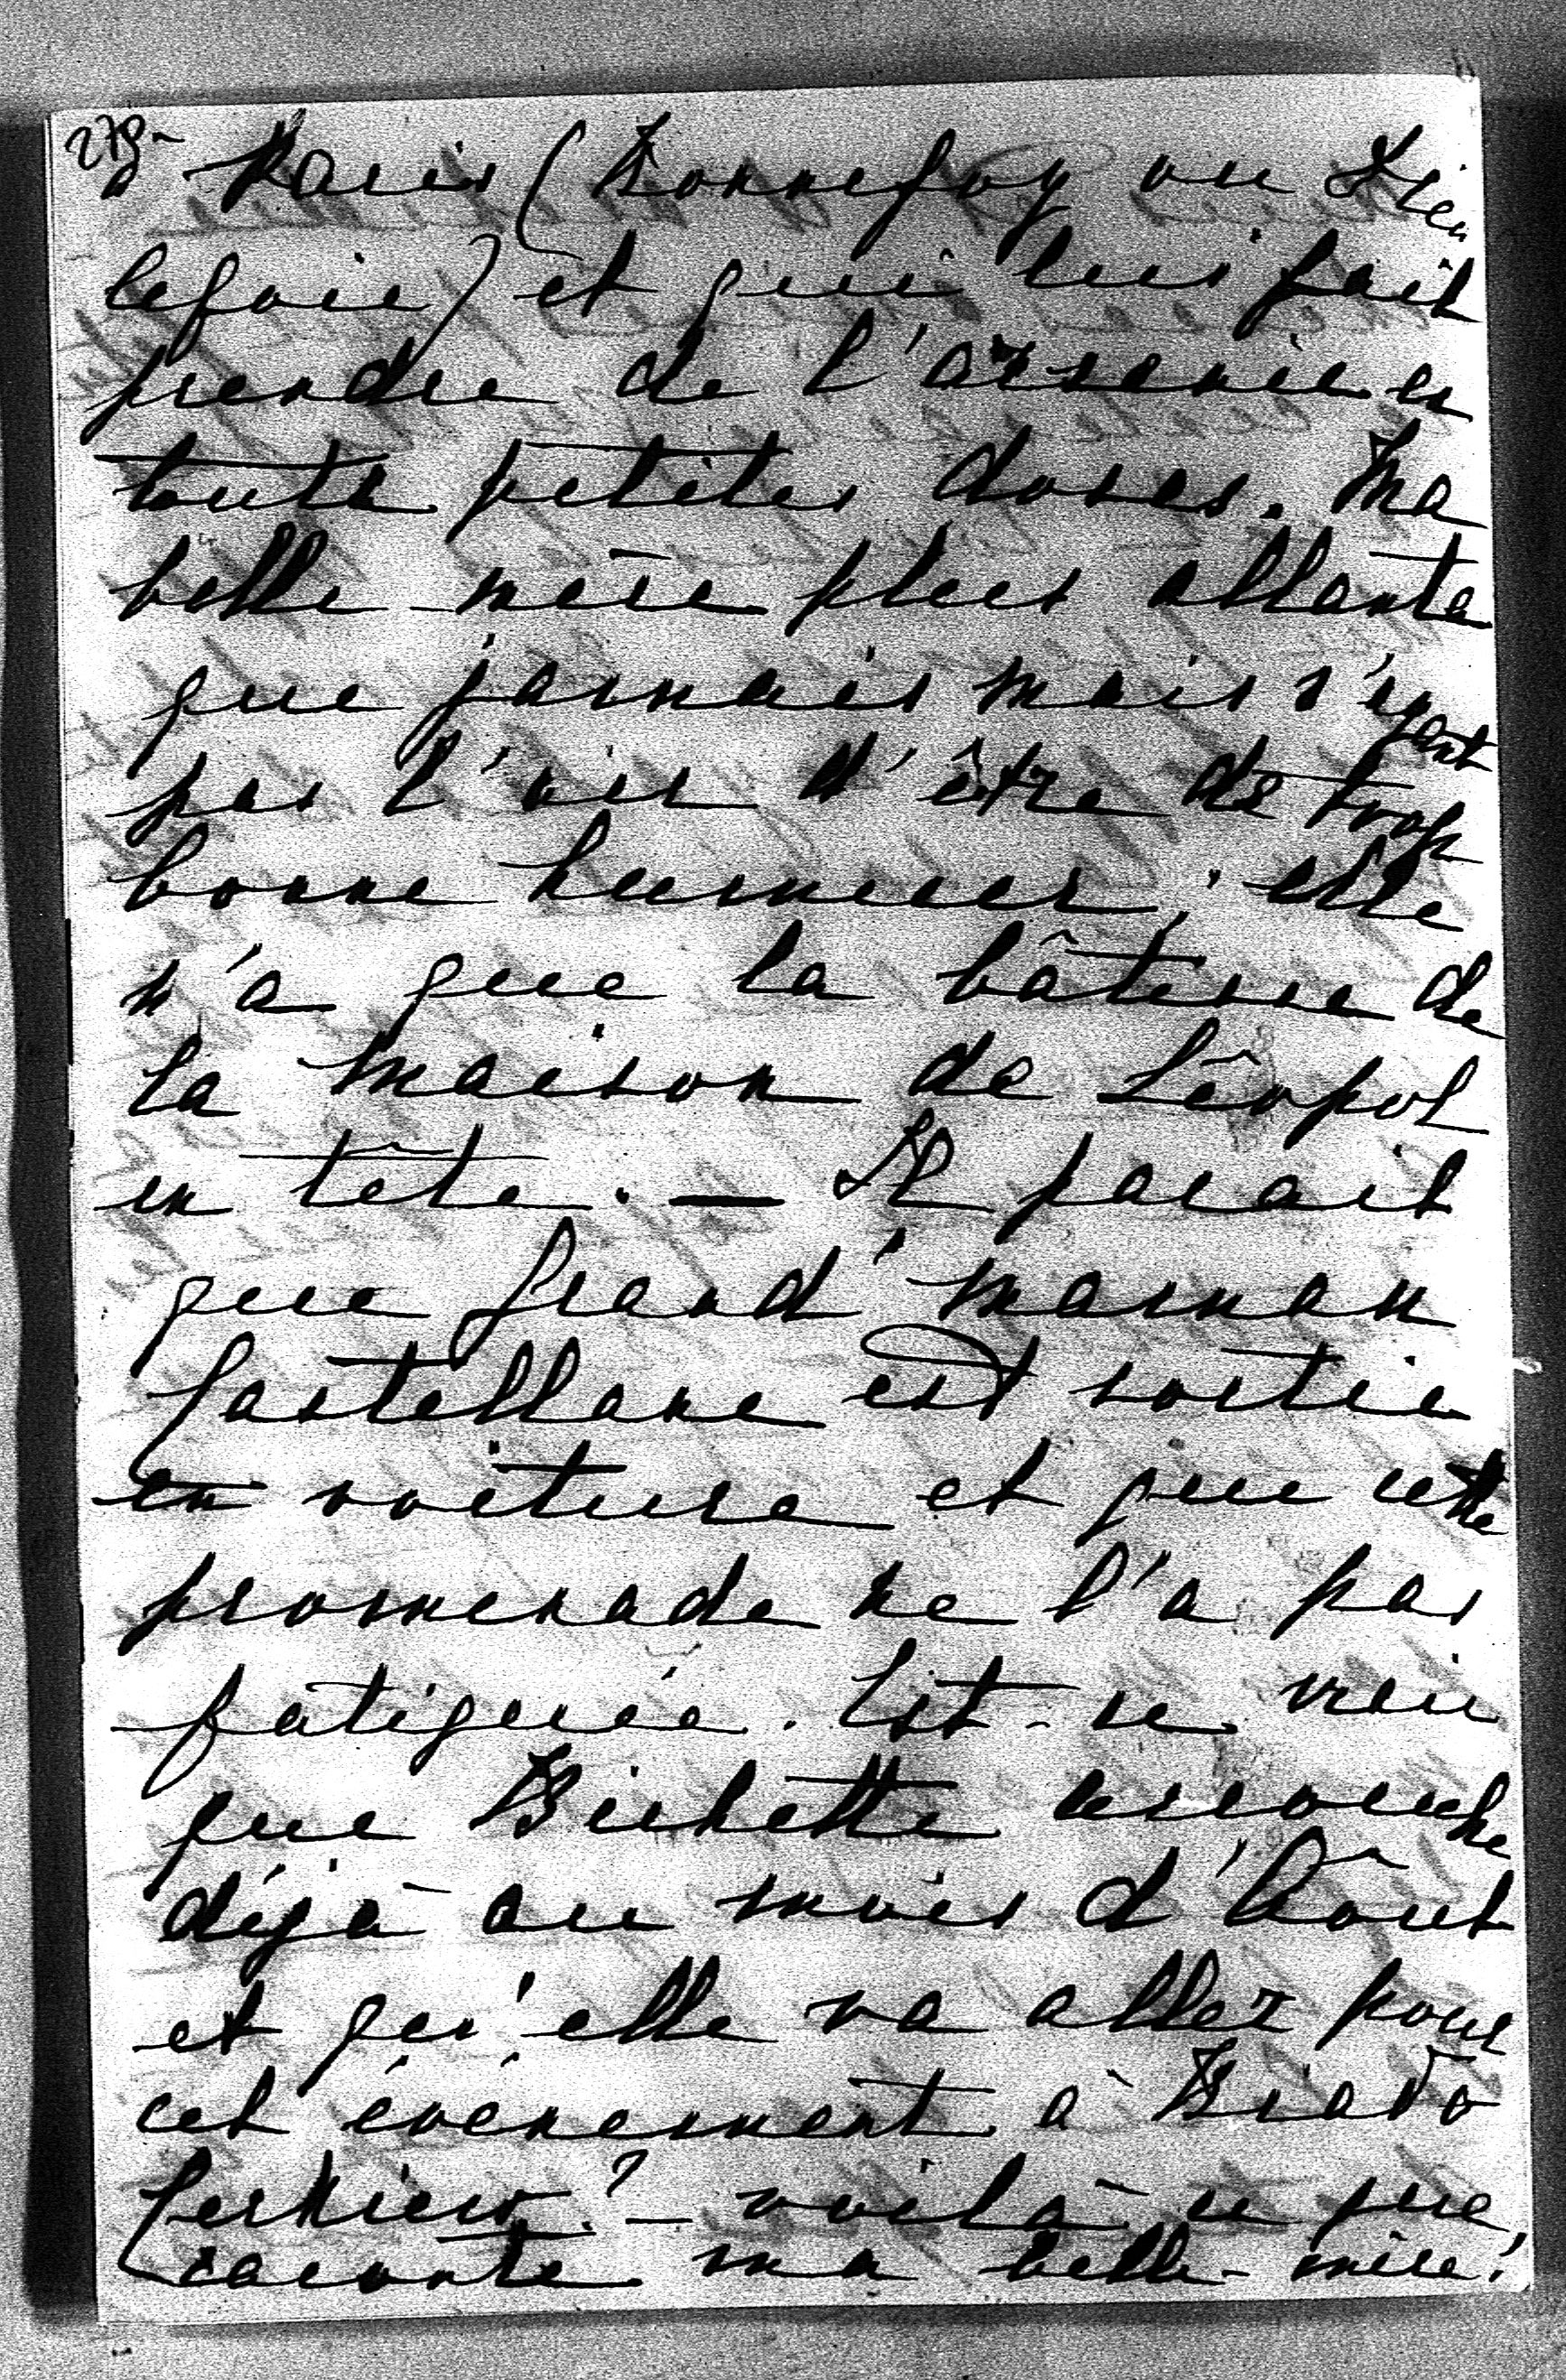 278-
à Paris (Bonnefoy ou Dieu
lafoie) et qui lui fait
prendre de l'arsenic en
toute petites doses. Ma
belle-mère plus allante
que jamais mais n'ayant
pas l'air d'être de trop
bonne humeur; elle
n'a que la bâtisse de
la maison de Léopol
en tête. — Il parait
que grand'maman
Castellane est sortie
en voiture et que cette
promenade ne l'a pas
fatiguée. Est-ce vrai
que Bichette accouche
déjà au mois d'Août
et qu'elle va aller pour
cet événement à
voilà ce que
raconte ma belle-mère!